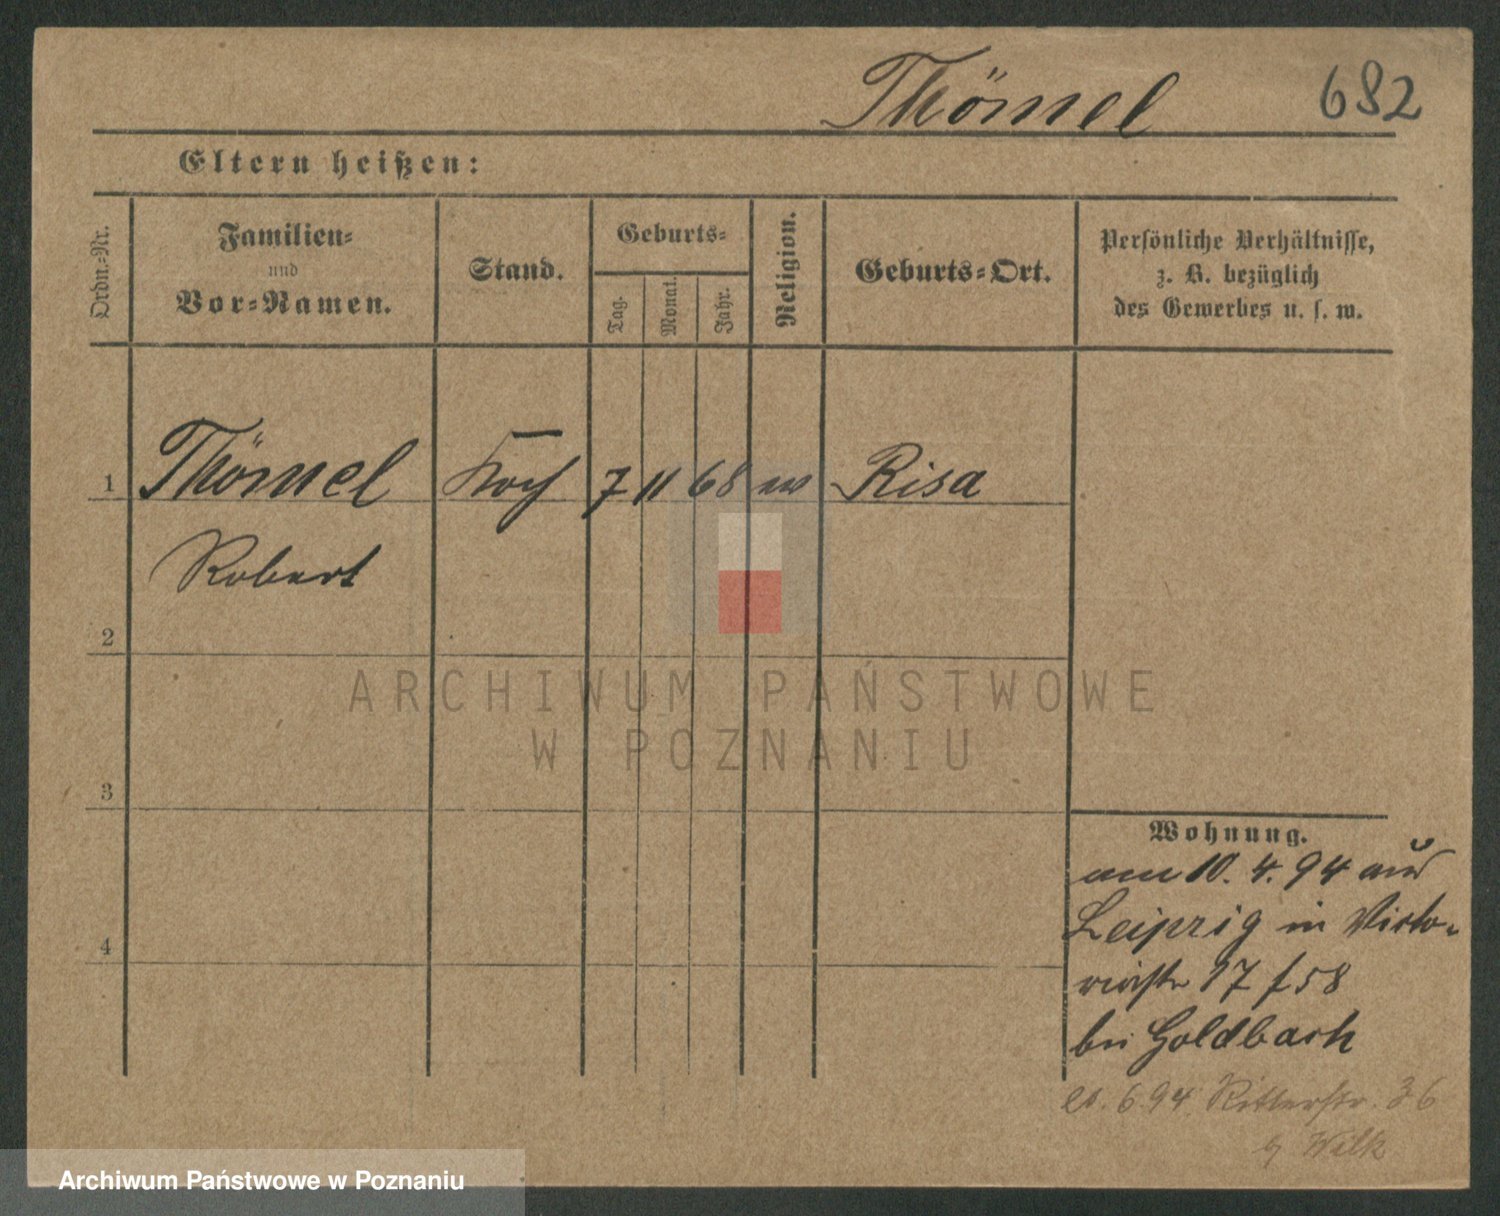 Thömel 682
Eltern heißen:
Ordn.-Nr.
Familien-
und
Vor-Namen.
Stand.
Geburts-
Tag.
Monat.
Jahr.
Religion.
Geburts-Ort.
Persönliche Verhältnisse,
z. B. bezüglich
des Gewerbes u. s. w.
1 Thömel Koch 7 11 68 Risa
Robert
2
ARCHIWUM PAŃSTWOWE
W POZNANIU
3
4
Wohnung.
am 10. 4. 94 aus
Leipzig in Victo-
riastr 17
bei Goldbach
6 94 Ritterstr. 36
Wilk
Archiwum Państwowe w Poznaniu